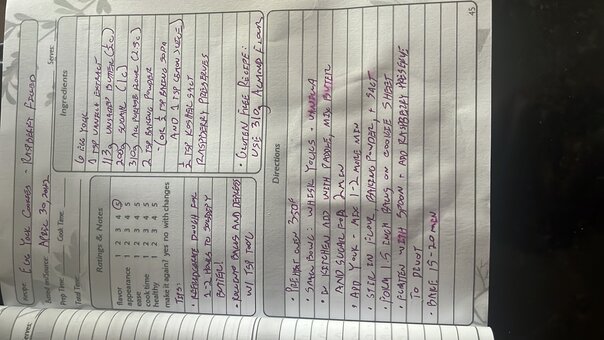 Recipe: Egg Yolk Cookies - Raspberry Filled
Source/Inspiration April 30, 2022
Serves:
Prep Time
Cook Time
Total Time
Ratings & Notes
flavor 1 2 3 4 5
appearance 1 2 3 4 5
ease 1 2 3 4 5
cook time 1 2 3 4 5
healthy 1 2 3 4 5
make it again? yes no with changes
TIPS:
• REFRIGERATE DOUGH FOR
1-2 HOURS TO SOLIDIFY
BUTTER!
• ROLLING BALLS AND DEPRESS
W/ TSP TOOL
Ingredients
6 EGG YOLK
1 TSP VANILLA EXTRACT
113g UNSALTED BUTTER (½c)
200g SUGAR (1c)
310g ALL PURPOSE FLOUR (2.5c)
2 TSP BAKING POWDER
- (OR ½ TSP BAKING SODA
AND 1 TSP LEMON JUICE)
½ TSP KOSHER SALT
RASPBERRY PRESERVES
• GLUTEN FREE RECIPE:
USE 310g ALMOND FLOUR
Directions
• PREHEAT OVEN 350°F
• SMALL BOWL: WHISK YOLKS + VANILLA
• IN KITCHEN AID WITH PADDLE, MIX BUTTER
AND SUGAR FOR 2 MIN
• ADD YOLK - MIX 1-2 MORE MIN
• STIR IN FLOUR, BAKING POWDER, + SALT
• FORM 1.5 INCH BALLS ON COOKIE SHEET
• FLATTEN WITH SPOON + ADD RASPBERRY PRESERVE
TO DIVOT
• BAKE 15-20 MIN
45